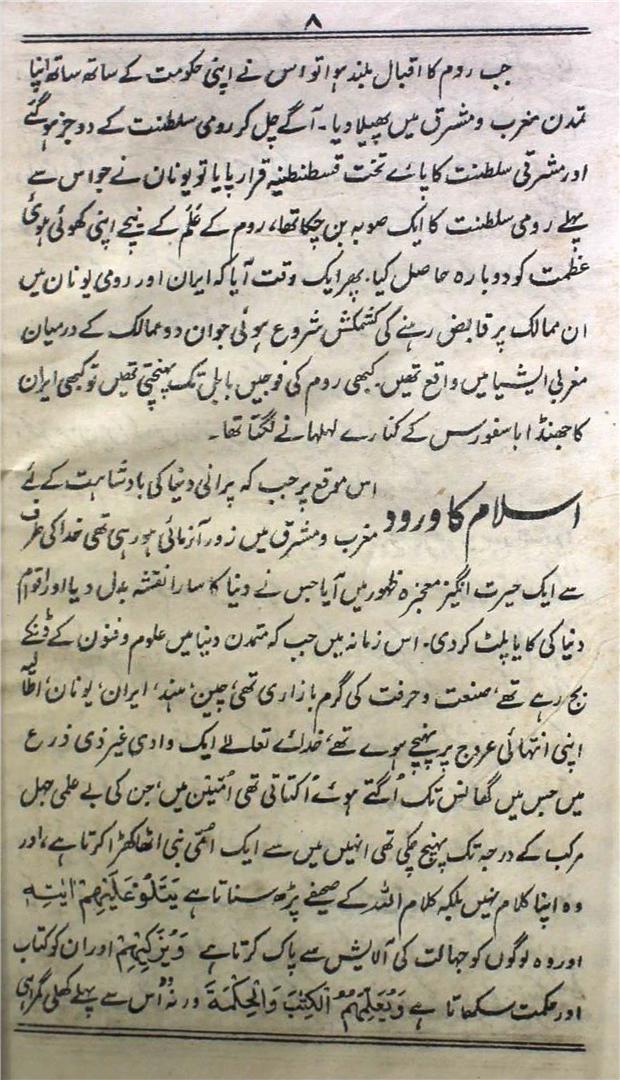 ۸
جب روم کا اقبال بلند ہوا تو اس نے اپنی حکومت کے ساتھ ساتھ اپنا
تمدن مغرب و مشرق میں پھیلا دیا۔ آگے چل کر رومی سلطنت کے دو جز ہو گئے
اور مشرقی سلطنت کا پائے تخت قسطنطنیہ قرار پایا تو یونان نے جو اس سے
پہلے رومی سلطنت کا ایک صوبہ بن چکا تھا، روم کے عَلَم کے نیچے اپنی کھوئی ہوئی
عظمت کو دوبارہ حاصل کیا۔ پھر ایک وقت آیا کہ ایران اور رومی یونان میں
ان ممالک پر قابض رہنے کی کشمکش شروع ہوئی جو ان دو ممالک کے درمیان
مغربی ایشیا میں واقع تھیں۔ کبھی روم کی فوجیں بابل تک پہنچتی تھیں تو کبھی ایران
کا جھنڈا باسفورس کے کنارے لہلہانے لگتا تھا۔
اسلام کا ورود
اس موقع پر جب کہ پرانی دنیا کی بادشاہت کے لئے
مغرب و مشرق میں زور آزمائی ہو رہی تھی خدا کی طرف
سے ایک حیرت انگیز معجزہ ظہور میں آیا جس نے دنیا کا سارا نقشہ بدل دیا اور اقوام
دنیا کی کایا پلٹ کر دی۔ اس زمانہ میں جب کہ متمدن دنیا میں علوم و فنون کے ڈنکے
بج رہے تھے، صنعت و حرفت کی گرم بازاری تھی، چین، ہند، ایران، یونان، اطالیہ
اپنی انتہائی عروج پر پہنچے ہوے تھے، خدائے تعالےٰ ایک وادیِ غیر ذی ذرع
میں جس میں گھانس تک اُگتے ہوئے اُکتاتی تھی اُمّیّین میں، جن کی بے علمی جہل
مرکب کے درجہ تک پہنچ چکی تھی انہیں میں سے ایک اُمّی نبی اٹھا کھڑا کرتا ہے، اور
وہ اپنا کلام نہیں بلکہ کلام اللہ کے صحیفے پڑھ سناتا ہے یَتْلُوْ عَلَیْہِمْ اٰیٰتِہٖ
اور وہ لوگوں کو جہالت کی آلایش سے پاک کرتا ہے وَیُزَکِّیْہِمْ اور ان کو کتاب
اور حکمت سکھاتا ہے وَیُعَلِّمُہُمُ الْکِتٰبَ وَالْحِکْمَۃَ ورنہ وُہ اُس سے پہلے کھلی گمراہی